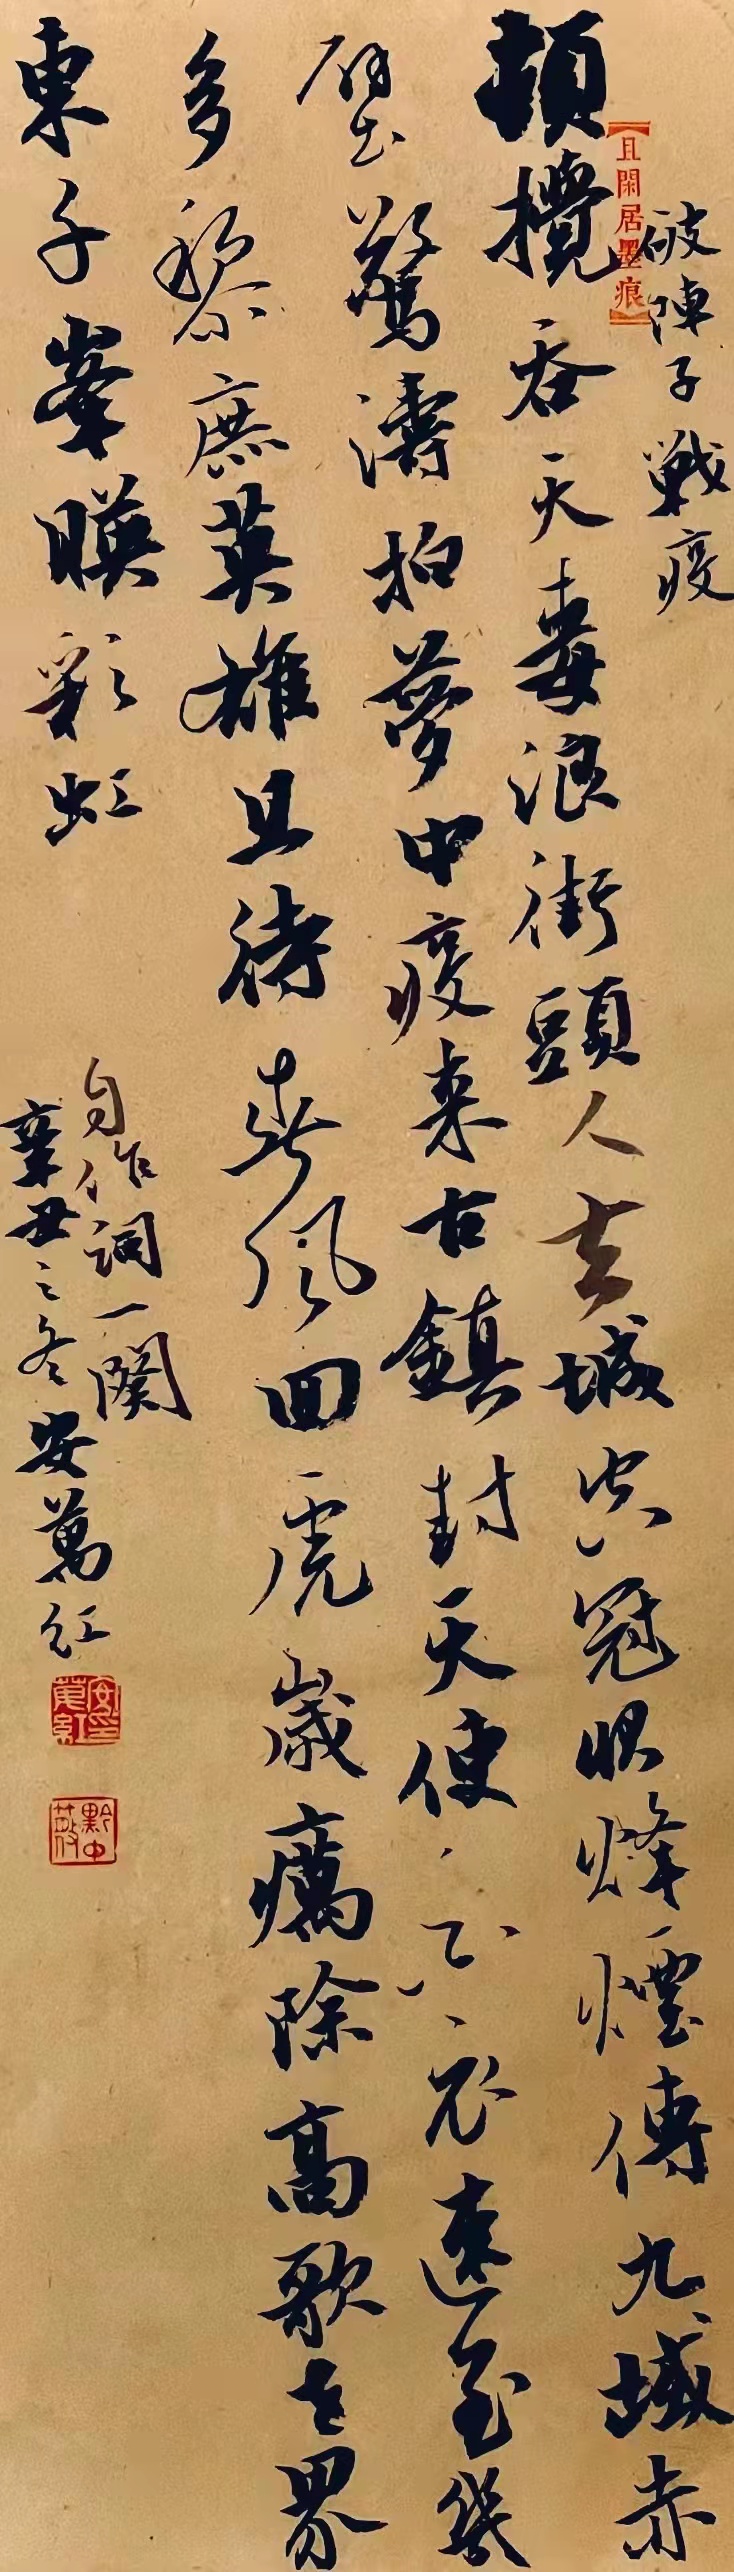 破陣子戰疫
【且閑居墨痕】
頓攪吞天毒浪街頭人去城空冠狀烽煙傳九域赤
壁驚濤拍夢中疫來古鎮封天使速至幾
多黎庶英雄且待春風回虎歲癘除高歌世界
東千峯暎彩虹
自作詞一闋
辛丑之冬安萬紅
安萬紅印